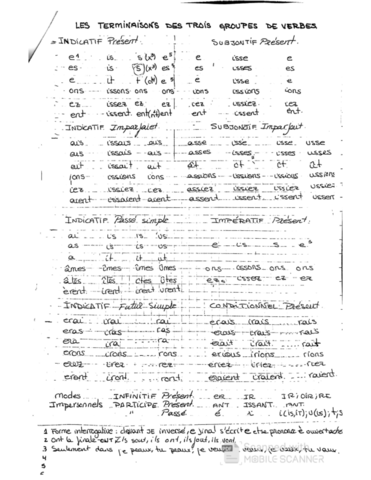 LES TERMINAISONS DES TROIS GROUPES DE VERBES
INDICATIF Présent SUBJONTIF Présent
e¹ is s(x³) e⁵ e isse e
es is s(x³) es⁴ es isses es
e it t (d⁴) e⁵ e isse e
ons issons ons ons ions issions ions
ez issez ez iez issiez iez
ent issent ent(nt)² ent ent issent ent
INDICATIF Imparfait SUBJONTIF Imparfait
ais issais ais asse isse usse
ais issais ais asses isses usses
ait issait ait ât ît ût
ions issions ions assions issions ussions
iez issiez iez assiez issiez ussiez
aient issaient aient assent issent ussent
INDICATIF Passé simple IMPÉRATIF Présent
ai is is us
as is is us e is s e⁵
a it it ut
âmes îmes îmes ûmes ons issons ons ons
âtes îtes îtes ûtes ez issez ez ez
èrent irent irent urent
INDICATIF Futur Simple CONDITIONNEL Présent
erai irai rai erais irais rais
eras iras ras erais irais rais
era ira ra erait irait rait
erons irons rons erions irions rions
erez irez rez eriez iriez riez
eront iront ront eraient iraient raient
modes INFINITIF Présent ER IR IR; OIR; RE
Impersonnels PARTICIPE Présent ANT ISSANT ANT
" Passé é i i(is, it); u(us); t; s
1 Forme interrogative: devant JE inversé, e final s'écrit é et se prononce è ouverte
2 Ont la finale ONT ils sont, ils ont, ils font, ils vont
3 Seulement dans je peux, tu peux, je veux, tu veux, je vaux, tu vaux
4
5
Scanned with
MOBILE SCANNER